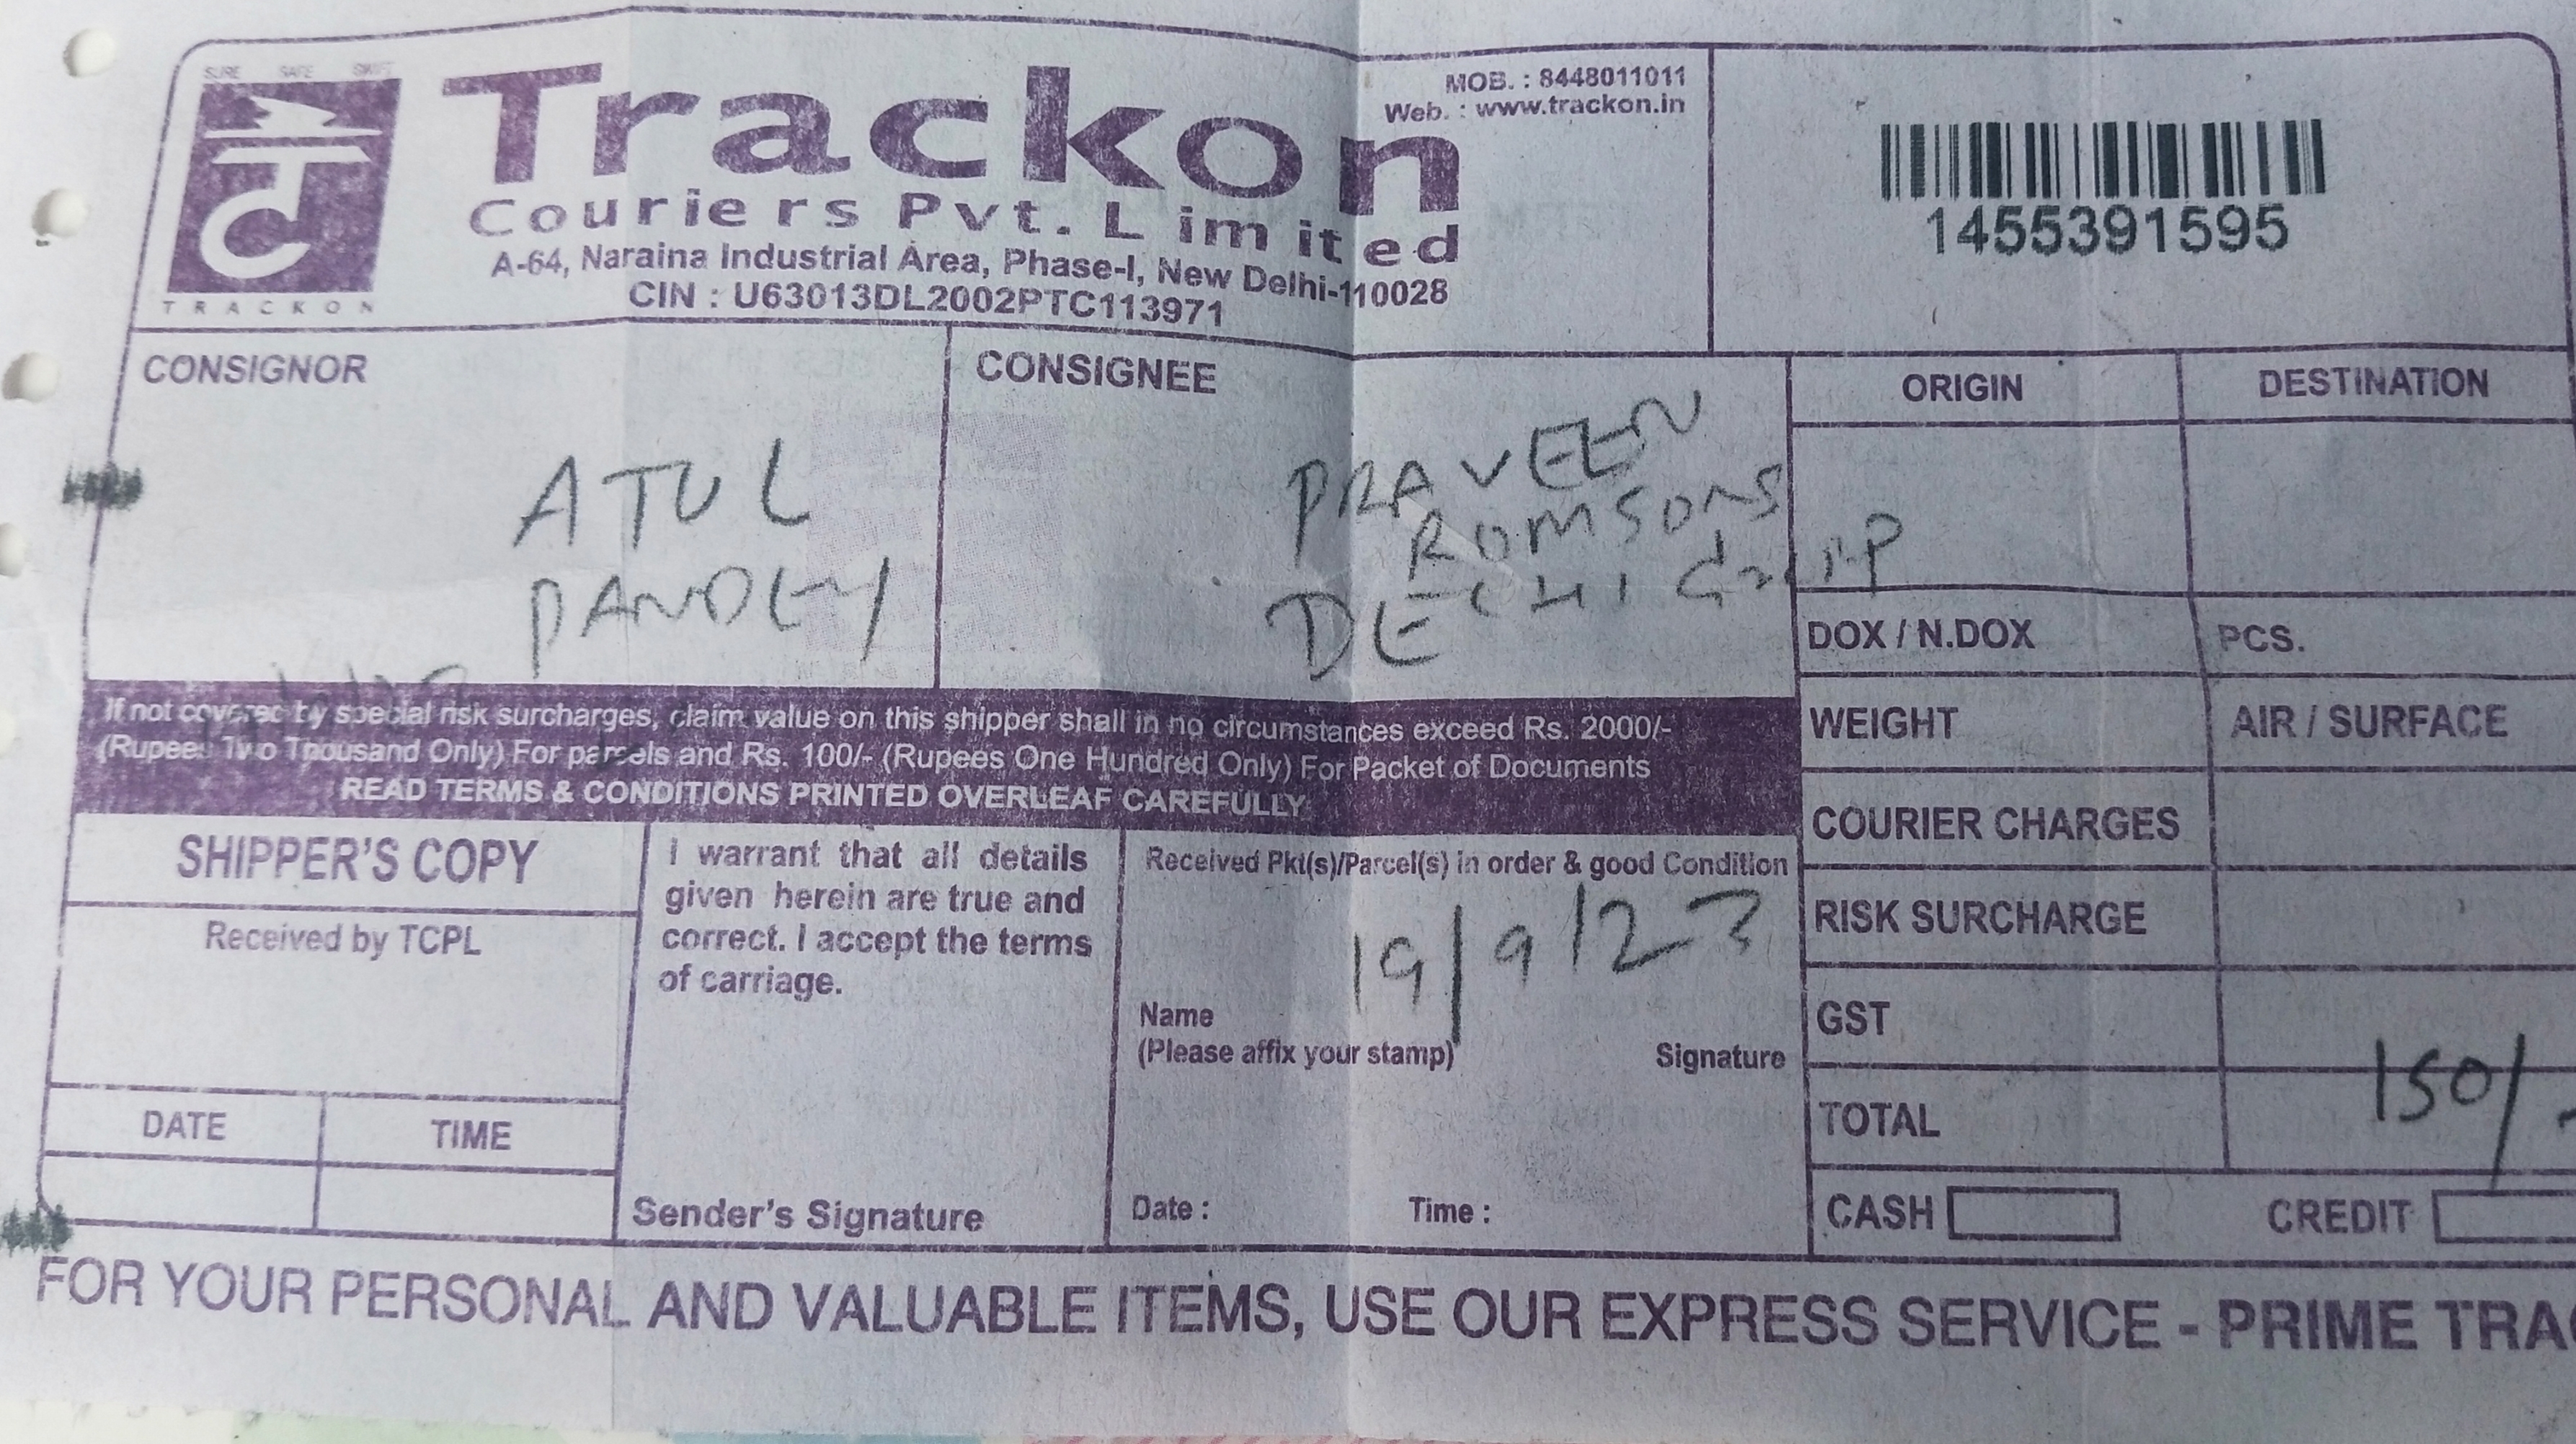 SURE SAFE SWIFT
TRACKON
Trackon
Couriers Pvt. Limited
A-64, Naraina Industrial Area, Phase-I, New Delhi-110028
CIN : U63013DL2002PTC113971
MOB. : 8448011011
Web. : www.trackon.in
1455391595
CONSIGNOR
ATUL
PANDEY
CONSIGNEE
PRAVEEN
ROMSONS
Group
DELHI
ORIGIN
DESTINATION
DOX / N.DOX
PCS.
WEIGHT
AIR / SURFACE
COURIER CHARGES
RISK SURCHARGE
GST
TOTAL
150/-
CASH
CREDIT
If not covered by special risk surcharges, claim value on this shipper shall in no circumstances exceed Rs. 2000/-
(Rupees Two Thousand Only) For parcels and Rs. 100/- (Rupees One Hundred Only) For Packet of Documents
READ TERMS & CONDITIONS PRINTED OVERLEAF CAREFULLY
SHIPPER'S COPY
Received by TCPL
DATE
TIME
I warrant that all details
given herein are true and
correct. I accept the terms
of carriage.
Sender's Signature
Received Pkt(s)/Parcel(s) in order & good Condition
19/9/23
Name
(Please affix your stamp)
Signature
Date :
Time :
FOR YOUR PERSONAL AND VALUABLE ITEMS, USE OUR EXPRESS SERVICE - PRIME